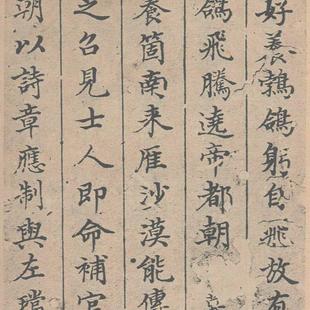 好養鵓鴿躬自飛放有
鴿飛騰遶帝都朝
養箇南来雁沙漠能傳
之召見士人即命補官
朝以詩章應制與左璫